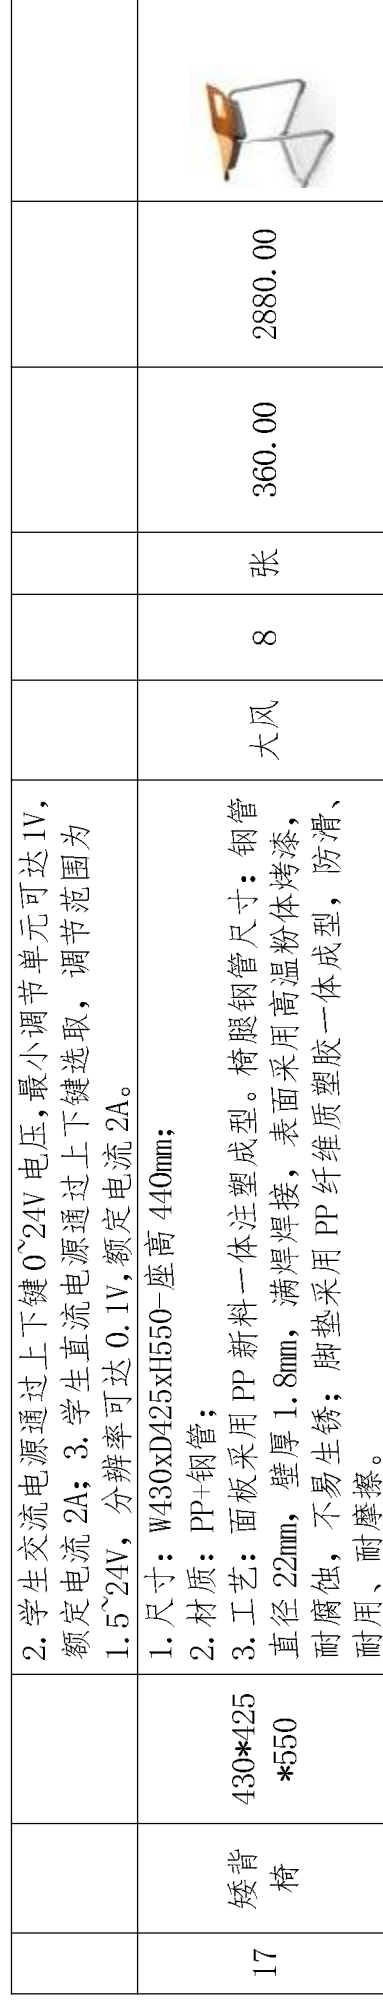 2. 学生交流电源通过上下键0~24V 电压,最小调节单元可达 1V,
额定电流 2A; 3. 学生直流电源通过上下键选取, 调节范围为
1.5~24V, 分辨率可达 0.1V,额定电流 2A。
17
矮背
椅
430*425
*550
1. 尺寸: W430xD425xH550-座高 440mm;
2. 材质: PP+钢管;
3. 工艺: 面板采用 PP 新料一体注塑成型。椅腿钢管尺寸: 钢管
直径 22mm, 壁厚 1.8mm, 满焊焊接, 表面采用高温粉体烤漆,
耐腐蚀, 不易生锈; 脚垫采用 PP 纤维质塑胶一体成型, 防滑、
耐用、耐摩擦。
大风
8
张
360.00
2880.00